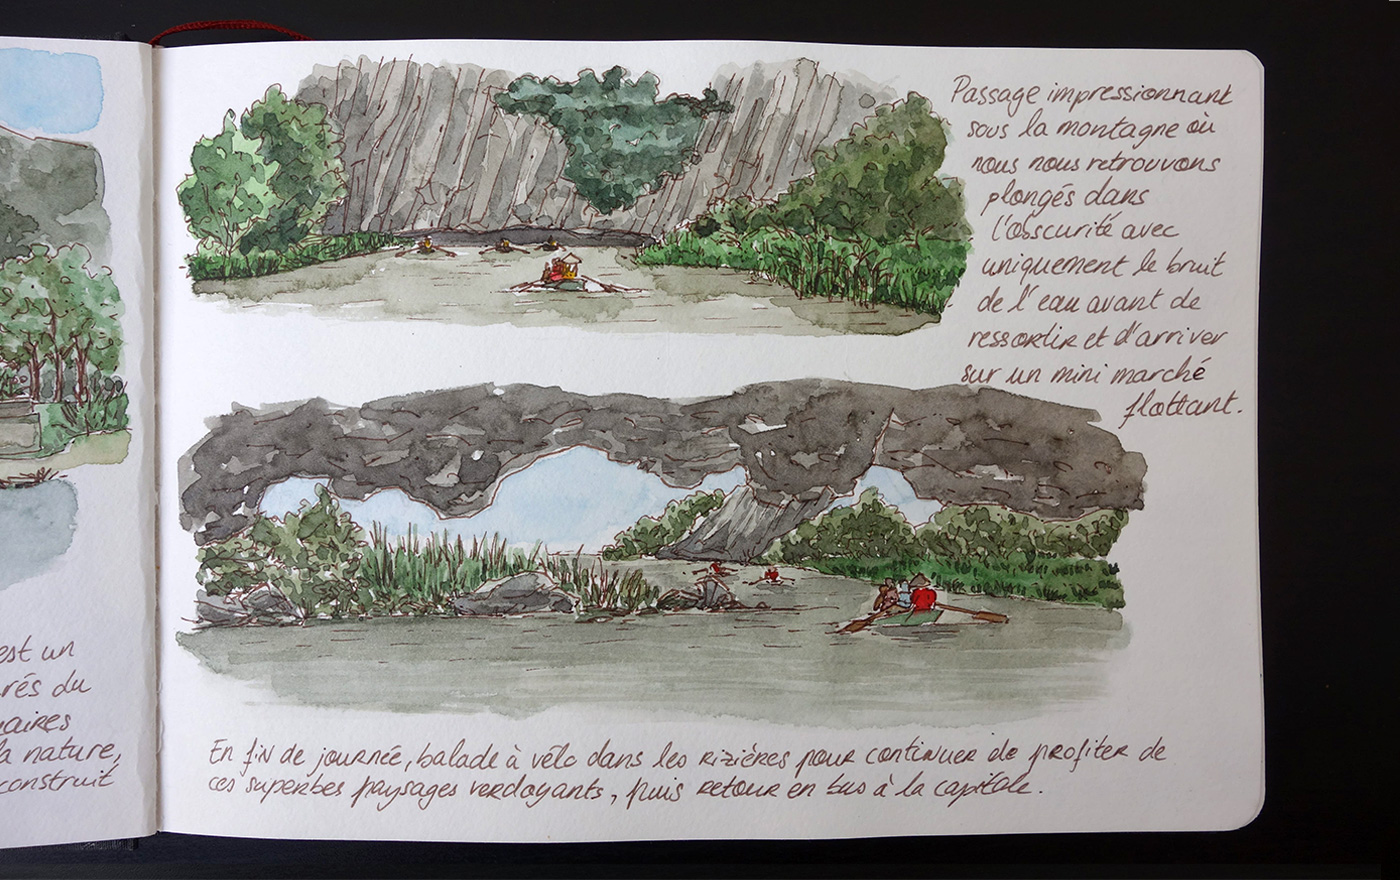 est un
rés du
naires
la nature,
construit
Passage impressionnant
sous la montagne où
nous nous retrouvons
plongés dans
l'obscurité avec
uniquement le bruit
de l'eau avant de
ressortir et d'arriver
sur un mini marché
flottant.
En fin de journée, balade à vélo dans les rizières pour continuer de profiter de
ces superbes paysages verdoyants, puis retour en bus à la capitale.